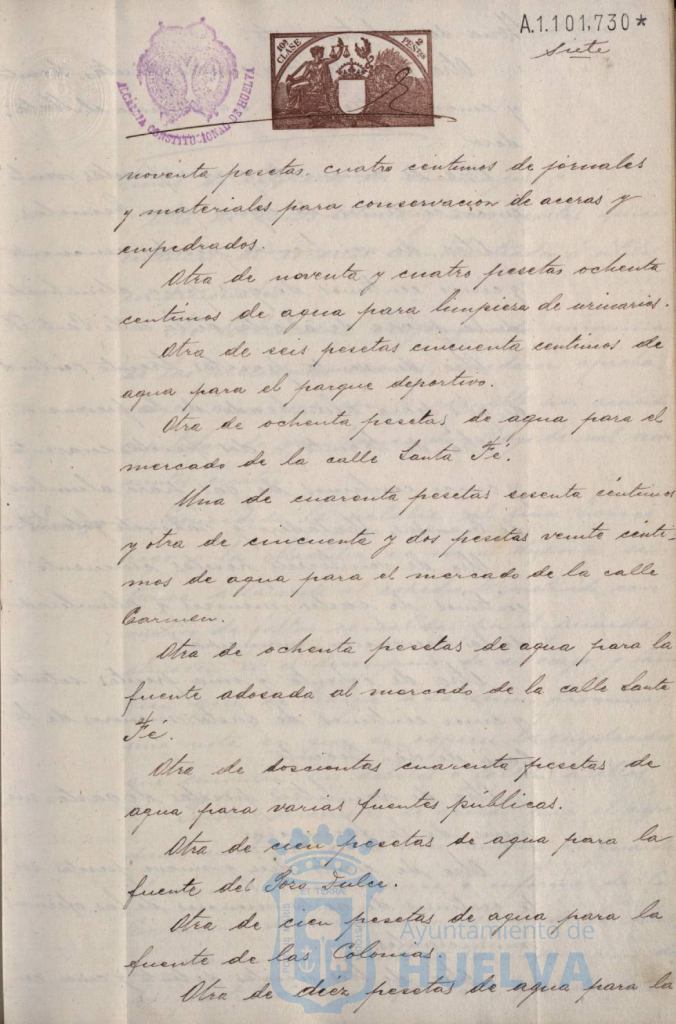 A.1.101,730*
siete
10ª CLASE
2 PESETAS
ALCALDIA CONSTITUCIONAL DE HUELVA
noventa pesetas cuatro céntimos de jornales
y materiales para conservacion de aceras y
empedrados.
Otra de noventa y cuatro pesetas ochenta
centimos de agua para limpieza de urinarios.
Otra de seis pesetas cincuenta centimos de
agua para el parque deportivo.
Otra de ochenta pesetas de agua para el
mercado de la calle Santa Fé.
Una de cuarenta pesetas sesenta céntimos
y otra de cincuenta y dos pesetas veinte cénti-
mos de agua para el mercado de la calle
Carmen.
Otra de ochenta pesetas de agua para la
fuente adosada al mercado de la calle Santa
Fé.
Otra de doscientas cuarenta pesetas de
agua para varias fuentes públicas.
Otra de cien pesetas de agua para la
fuente del Pozo Dulce.
Otra de cien pesetas de agua para la
fuente de las Colonias.
Otra de diez pesetas de agua para la
Ayuntamiento de
HUELVA